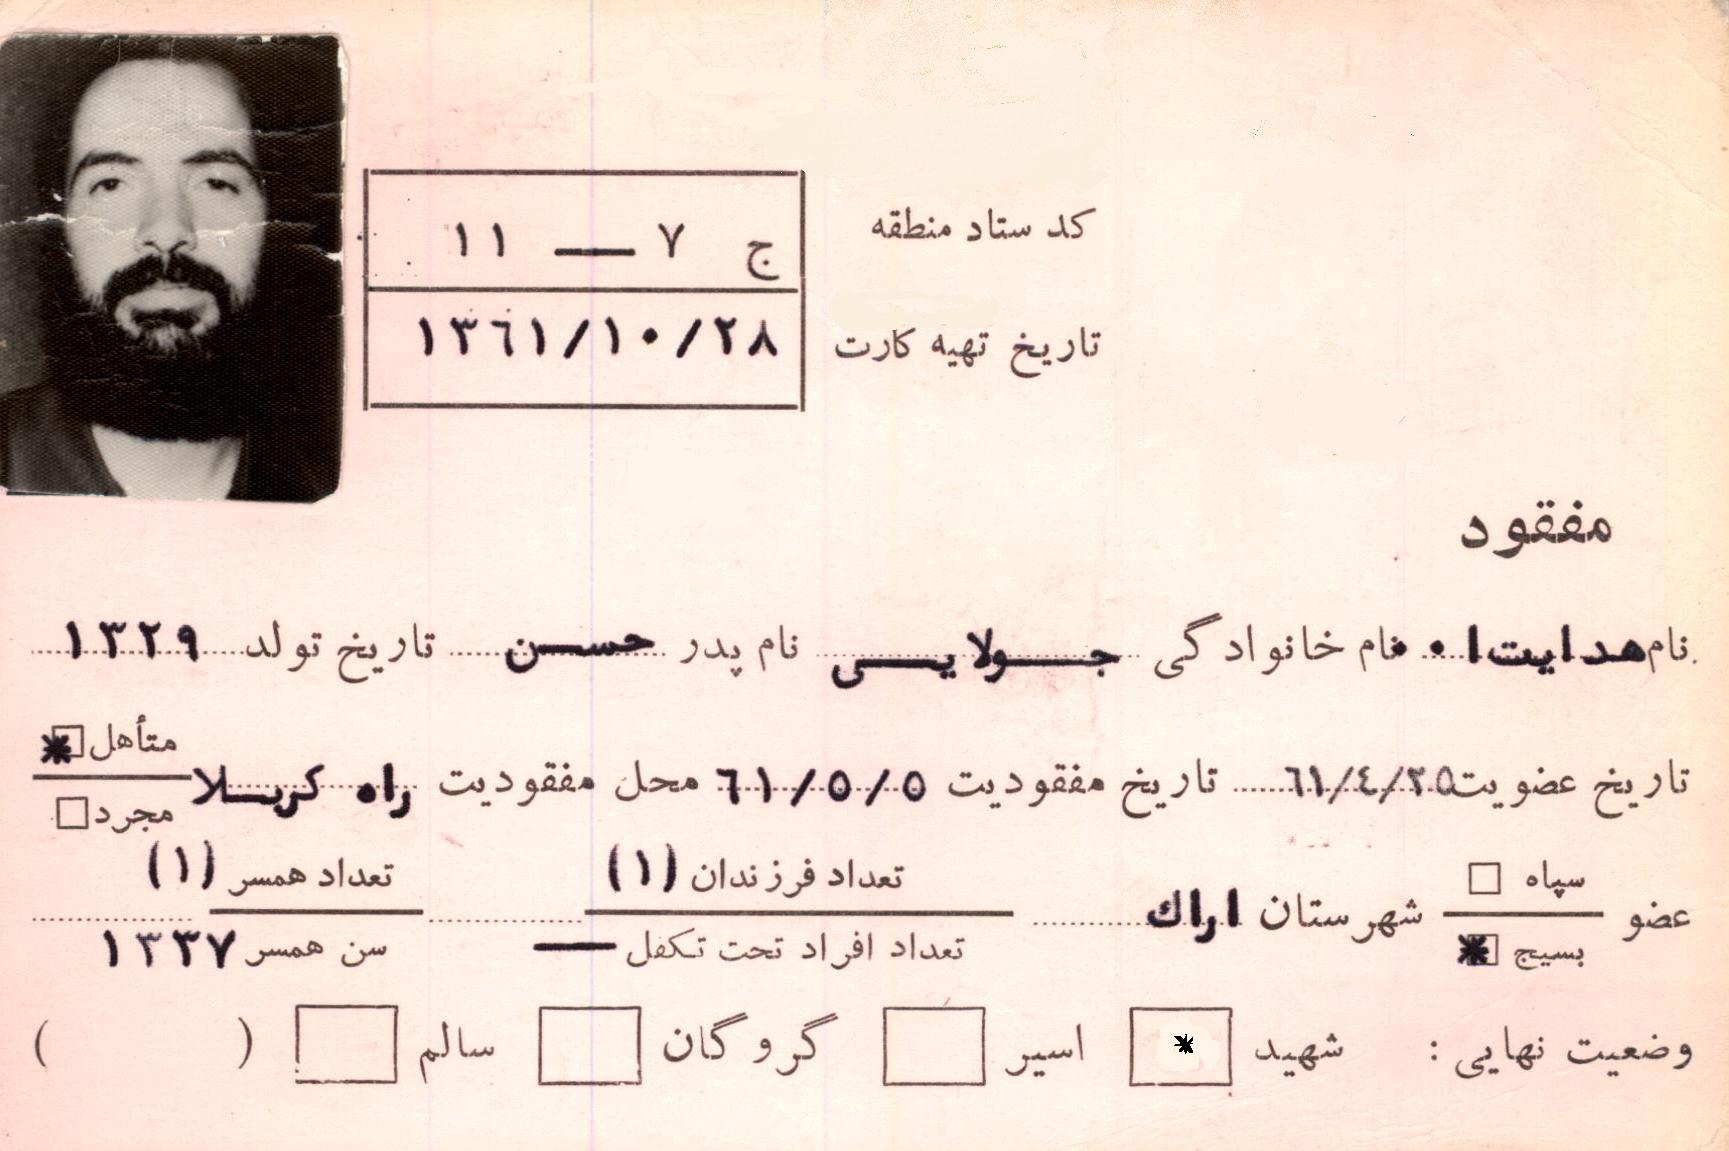 کد ستاد منطقه ج ۷ — ۱۱
تاریخ تهیه کارت ۱۳۶۱/۱۰/۲۸
مفقود
نام هدایت ا.. نام خانوادگی جولایی نام پدر حسن تاریخ تولد ۱۳۲۹
تاریخ عضویت ۶۱/۴/۲۵ تاریخ مفقودیت ۶۱/۵/۵ محل مفقودیت راه کربلا متأهل
مجرد
عضو سپاه شهرستان اراك تعداد فرزندان (۱) تعداد همسر (۱)
بسیج تعداد افراد تحت تکفل — سن همسر ۱۳۳۷
وضعیت نهایی : شهید * اسیر گروگان سالم ( )